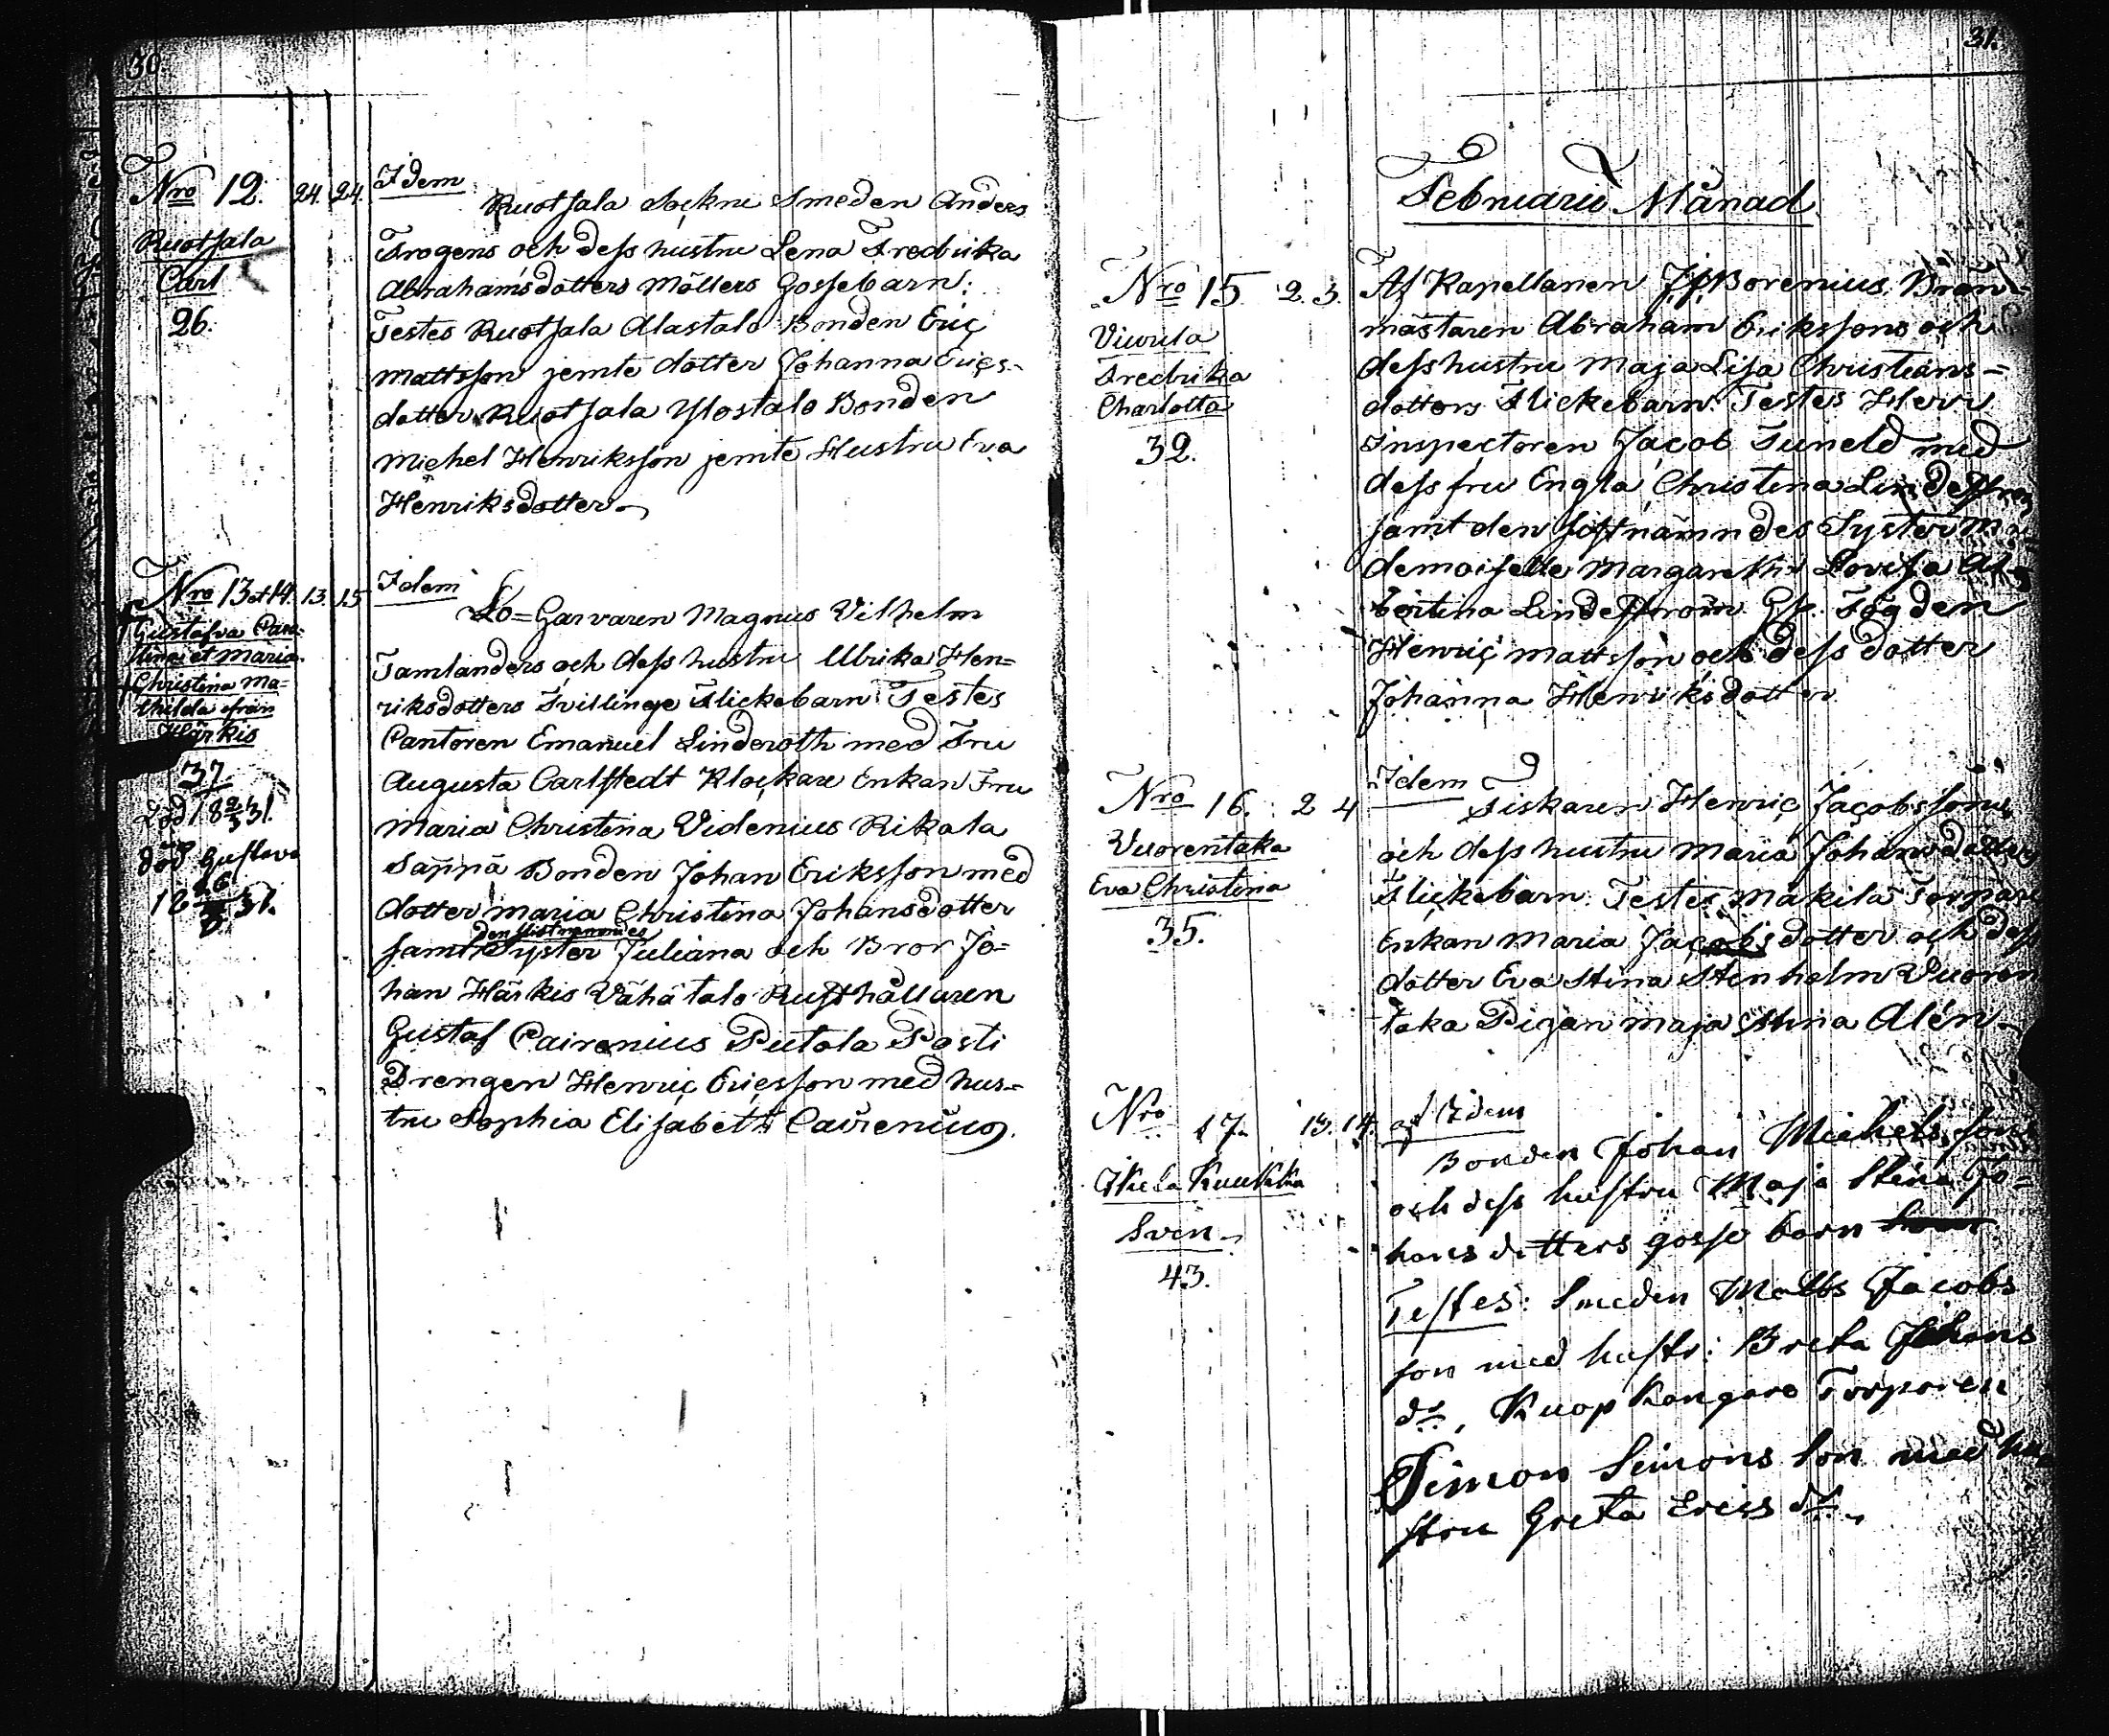 30.
Nro 12. 24. 24.
Ruotsala
Carl
26.
Idem
Ruotsala Sockne Smeden Anders
Frogens och dess hustru Lena Fredrika
Abrahamsdotters Möllers Gossebarn:
Testes Ruotsala Alastalo Bonden Eric
Mattsson jemte dotter Johanna Erics-
dotter Ruotsala Ylostalo Bonden
Michel Henriksson jemte Hustru Eva
Henriksdotter
Nro 13 et 14. 13. 15
Gustafva Caro-
lina et Maria
Christina Ma-
thilda från
Härkis
37
död 18 2/3 31.
död Gustava
18 26/3 31.
Idem
Lo=Garvaren Magnus Vilhelm
Tamlanders och dess hustru Ulrika Hen=
riksdotters Tvillinge Flickebarn Testes
Cantoren Emanuel Linderoth med Fru
Augusta Carlstedt Klockare Enkan Fru
Maria Christina Videnius Rikala
Sappä Bonden Johan Eriksson med
dotter Maria Christina Johansdotter
den sistnämndes
samt Syster Juliana och Bror Jo=
han Härkis Vähätalo Rusthållaren
Gustaf Cairenius Putala Posti
Drengen Henric Ericsson med hus=
tru Sophia Elisabeth Cairenius.
31.
Februarii Månad
Nro 15 2. 3.
Viurila
Fredrika
Charlotta
32.
Af Kapellanen Borenius. Brän-
mästaren Abraham Erikssons och
dess hustru Maja Lisa Christians=
dotters Flickebarn. Testes Herr
Inspectoren Jacob Tuneld med
dess fru Engla Christina
samt den sistnämndes Syster Ma
demoiselle Margaretha Lovisa Al-
bertina Lindeström Fogden
Henric Mattsson och dess dotter
Johanna Henriksdotter
Nro 16. 2 4
Vuorentaka
Eva Christina
35.
Idem
Fiskaren Henric Jacobssons
och dess hustru Maria Johansdotters
Flickebarn. Testes Mäkilä Torpare
Enkan Maria Jacobsdotter och dess
dotter Eva Stina Stenholm Vuoren
taka Pigan Maja Stina Alén
Nro 17. 13. 14.
Kuukka
Sven
43.
af Idem
Bonden Johan Michelssons
och dess hustru Maja Stina Jo=
hans dotters gosse barn
Testes: Smeden Matts Jacobs
son med hustr: Breta Johans
dr, Kuop Kangare Torparen
Simon Simons Son med hu
stru Greta Erics dr